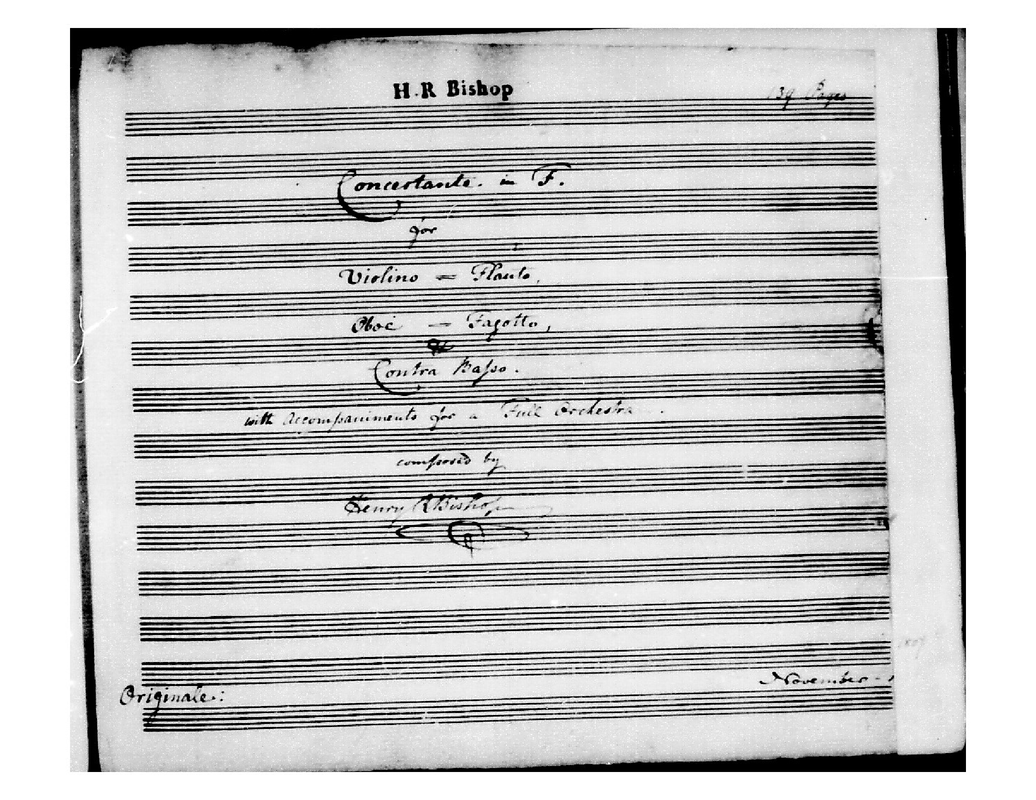 H. R Bishop
139 Pages
Concertante. in F.
for
Violino = Flauto,
Oboe = Fagotto,
&
Contra Basso.
with Accompaniments for a Full Orchestra.
composed by
Henry R Bishop
1807
November -
Originale: